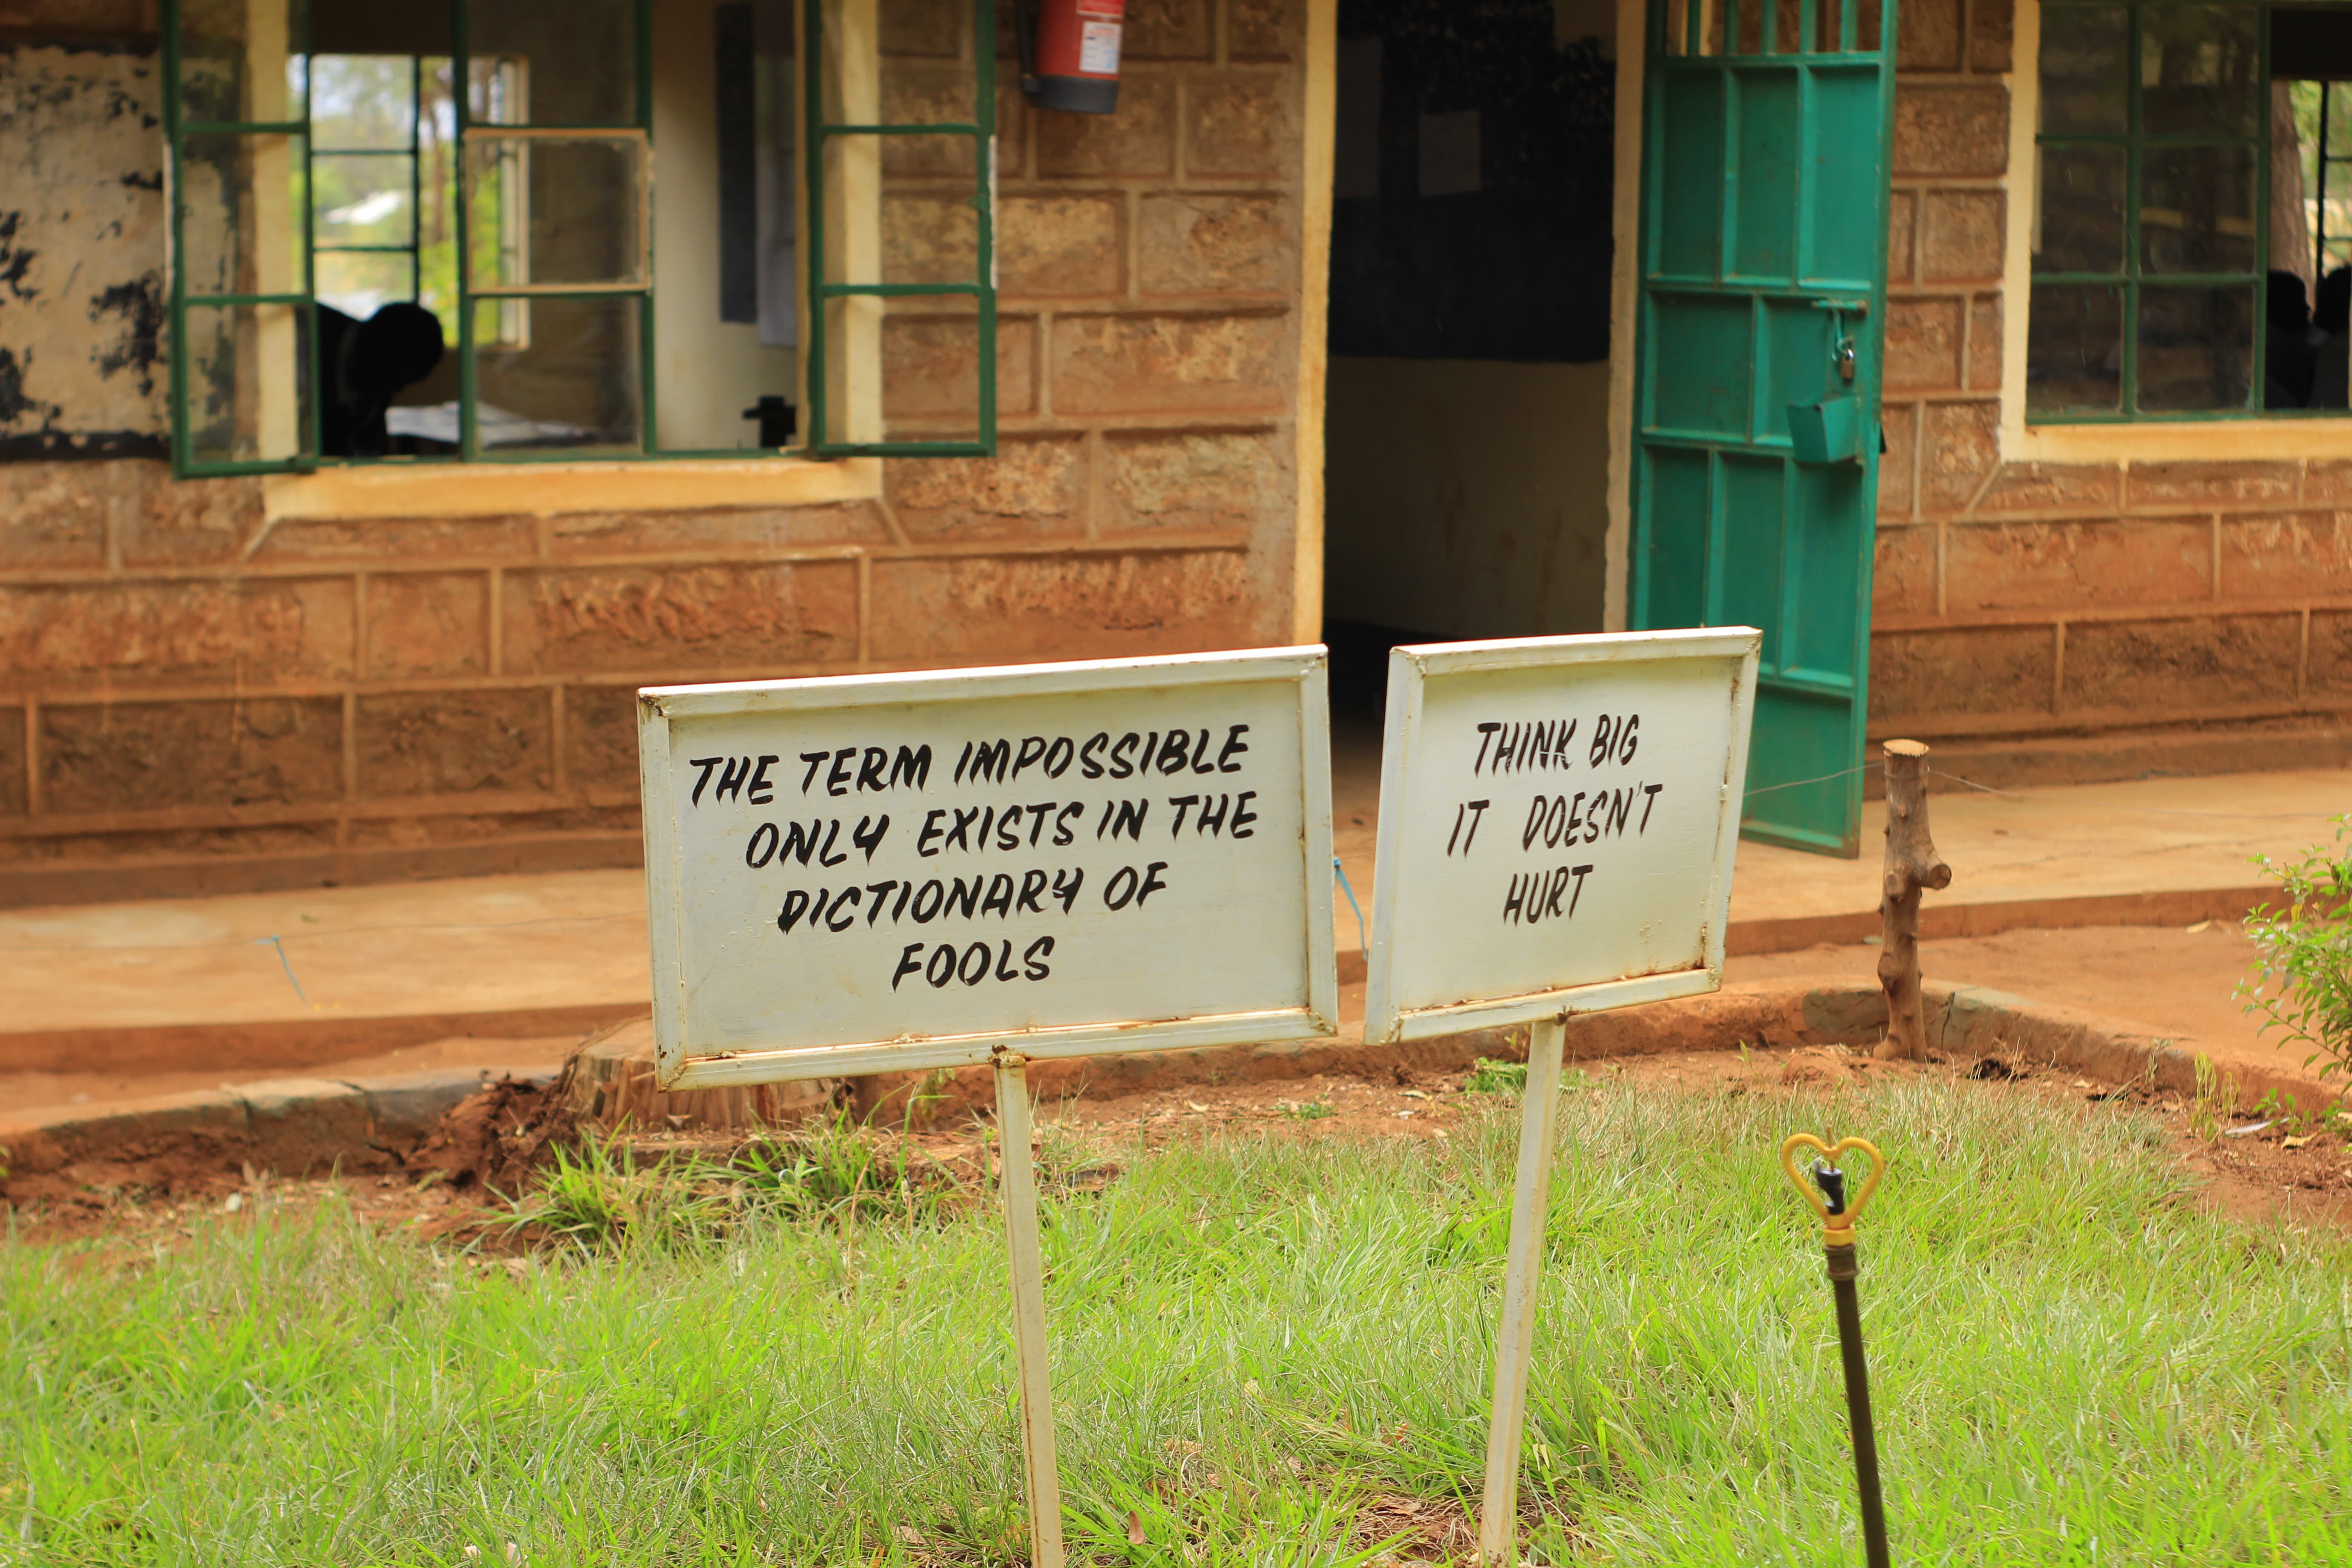 THE TERM IMPOSSIBLE
ONLY EXISTS IN THE
DICTIONARY OF
FOOLS
THINK BIG
IT DOESN'T
HURT